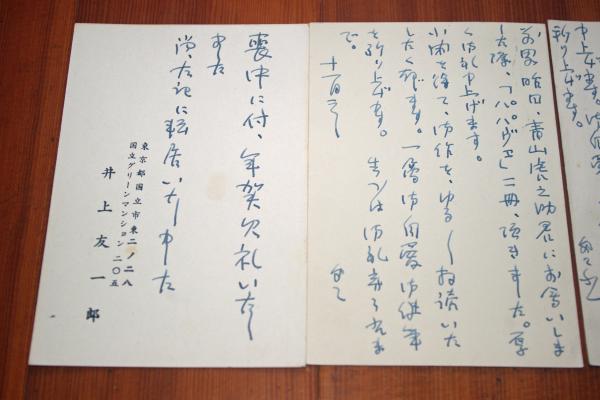 申上げます。
祈り上げます。
昨日、青山虎之助君にお会いしま
した際、「パパヴェ」二冊、頂きました。厚
く御礼申上げます。
小閑を得て、御作を、ゆる〱拝読いた
したく存じます。一層御自愛御健筆
を祈り上げます。まづは御礼
で。
喪中に付、年賀欠礼いたし
ました
尚、左記に転居いたしました
東京都国立市東二ノ二八
国立グリーンマンション二〇五
井上友一郎